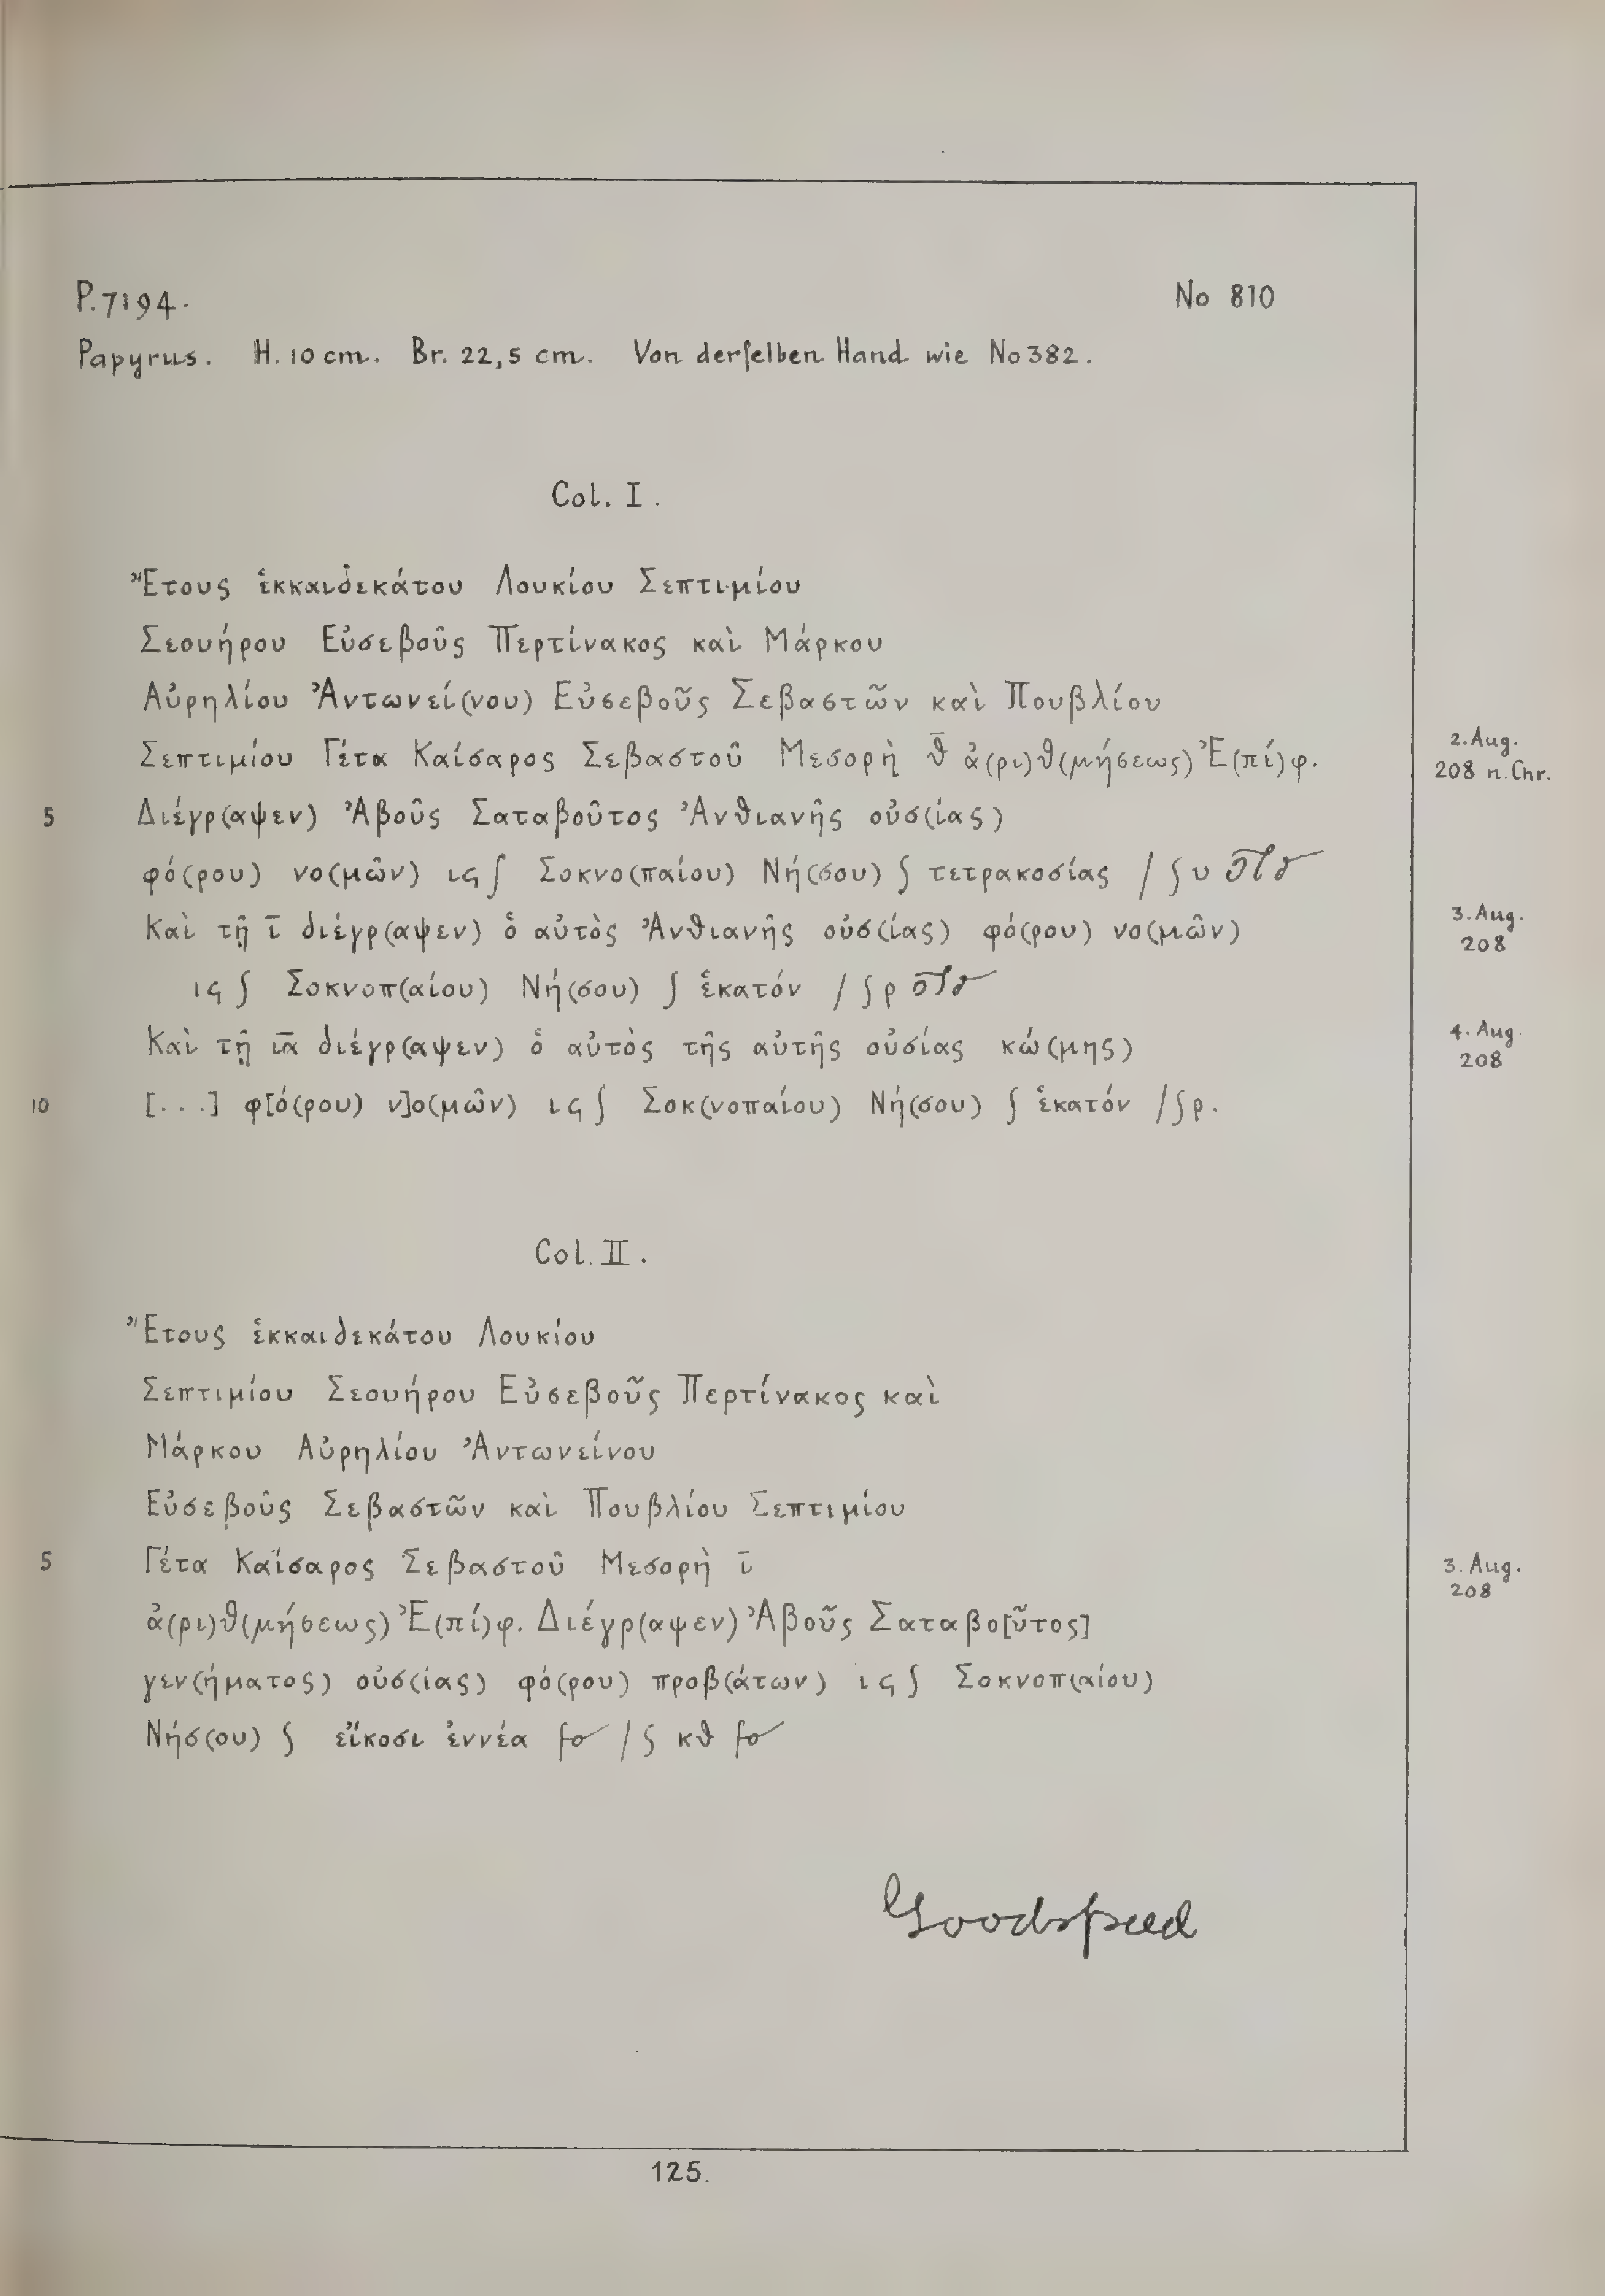 P. 7194.
No 810
Papyrus. H. 10 cm. Br. 22,5 cm. Von derſelben Hand wie No 382.
Col. I.
Ἔτους ἑκκαιδεκάτου Λουκίου Σεπτιμίου
Σεουήρου Εὐσεβοῦς Περτίνακος καὶ Μάρκου
Αὐρηλίου Ἀντωνεί(νου) Εὐσεβοῦς Σεβαστῶν καὶ Πουβλίου
Σεπτιμίου Γέτα Καίσαρος Σεβαστοῦ Μεσορὴ θ̄ ἀ(ρι)θ(μήσεως) Ἐ(πί)φ.
2. Aug.
208 n. Chr.
5 Διέγρ(αψεν) Ἀβοῦς Σαταβοῦτος Ἀνθιανῆς οὐσ(ίας)
φό(ρου) νο(μῶν) ιϛ ∫ Σοκνο(παίου) Νή(σου) ʃ τετρακοσίας / ʃ υ
Καὶ τῇ ῑ διέγρ(αψεν) ὁ αὐτὸς Ἀνθιανῆς οὐσ(ίας) φό(ρου) νο(μῶν)
3. Aug.
208
ιϛ ∫ Σοκνοπ(αίου) Νή(σου) ∫ ἑκατόν / ʃ ρ
Καὶ τῇ ῑᾱ διέγρ(αψεν) ὁ αὐτὸς τῆς αὐτῆς οὐσίας κώ(μης)
4. Aug.
208
10 [. . .] φ[ό(ρου) ν]ο(μῶν) ιϛ ∫ Σοκ(νοπαίου) Νή(σου) ∫ ἑκατόν / ∫ ρ.
Col. II.
Ἔτους ἑκκαιδεκάτου Λουκίου
Σεπτιμίου Σεουήρου Εὐσεβοῦς Περτίνακος καὶ
Μάρκου Αὐρηλίου Ἀντωνείνου
Εὐσεβοῦς Σεβαστῶν καὶ Πουβλίου Σεπτιμίου
5 Γέτα Καίσαρος Σεβαστοῦ Μεσορὴ ῑ
3. Aug.
208
ἀ(ρι)θ(μήσεως) Ἐ(πί)φ. Διέγρ(αψεν) Ἀβοῦς Σαταβο[ῦτος]
γεν(ήματος) οὐσ(ίας) φό(ρου) προβ(άτων) ιϛ ∫ Σοκνοπ(αίου)
Νήσ(ου) ʃ εἴκοσι ἐννέα / ʃ κθ
Goodspeed
125.